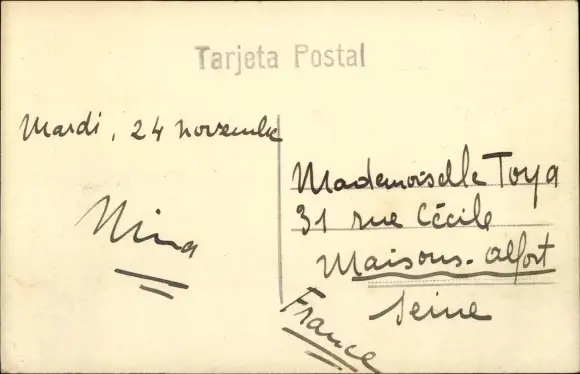 Tarjeta Postal
Mardi, 24 novembre
Nina
Mademoiselle Toya
31 rue Cécile
Maisons-Alfort
Seine
France